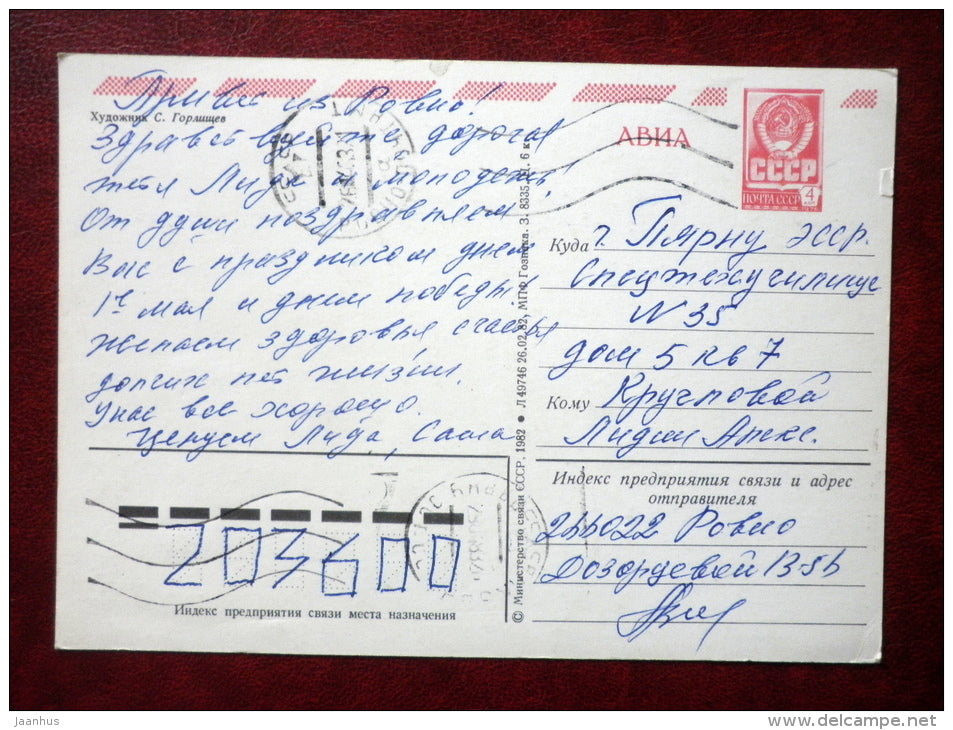 Художник С. Горлищев
Привет из Ровно!
Здравствуйте дорогая
тётя Лида и молодежь!
От души поздравляем
Вас с праздником днем
1е мая и днем победы
желаем здоровья счастья
долгих лет жизни.
У нас все хорошо.
Целуем Лида, Саша
АВИА
СССР
ПОЧТА СССР 4
Куда г. Пярну эсср.
Спецтехучилище
N 35
дом 5 кв 7
Кому Кругловой
Лидии Алекс.
Индекс предприятия связи и адрес
отправителя
266022 Ровно
Дозорцевой
203600
Индекс предприятия связи места назначения
© Министерство связи СССР, 1982 ● Л 49746 26.02.82, МПФ Гознака. З. 8335. Ц. 6 к.
jaanhus
www.delcampe.net